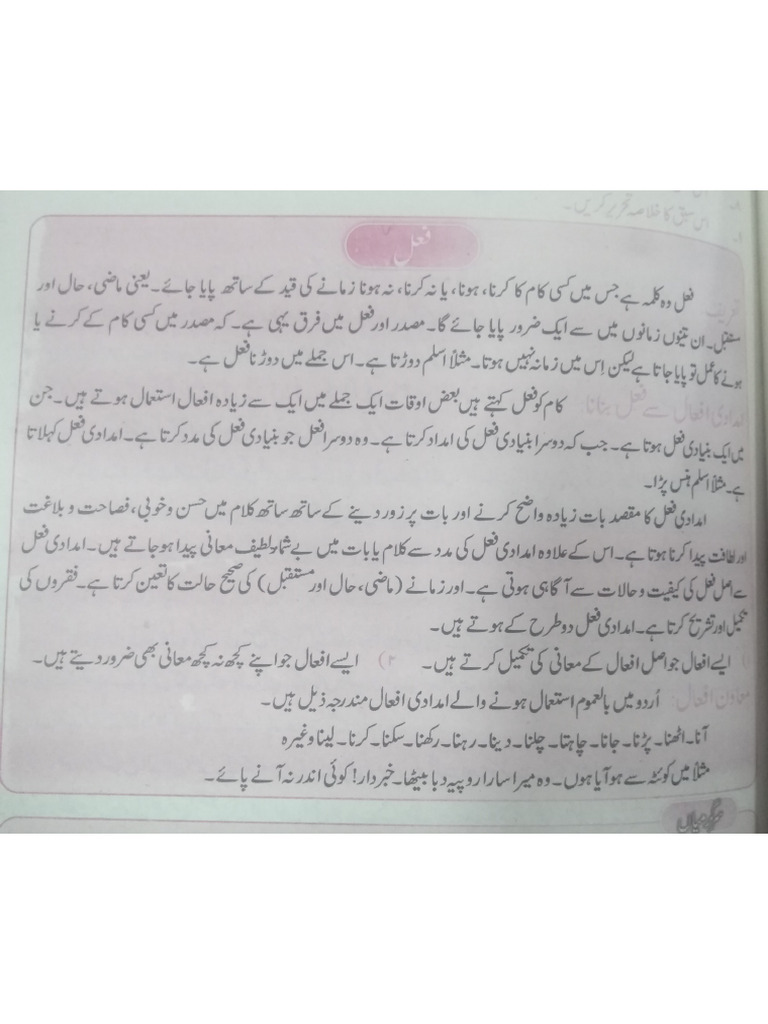 اس سبق کا خلاصہ تحریر کریں۔
فعل
فعل وہ کلمہ ہے جس میں کسی کام کا کرنا، ہونا، یا نہ کرنا، نہ ہونا زمانے کی قید کے ساتھ پایا جائے۔ یعنی ماضی، حال اور
تعریف
مستقبل۔ ان تینوں زمانوں میں سے ایک ضرور پایا جائے گا۔ مصدر اور فعل میں فرق یہی ہے۔ کہ مصدر میں کسی کام کے کرنے یا
ہونے کا عمل تو پایا جاتا ہے لیکن اِس میں زمانہ نہیں ہوتا۔ مثلاً اسلم دوڑتا ہے۔ اس جملے میں دوڑنا فعل ہے۔
امدادی افعال سے فعل بنانا کام کو فعل کہتے ہیں بعض اوقات ایک جملے میں ایک سے زیادہ افعال استعمال ہوتے ہیں۔ جن
میں ایک بنیادی فعل ہوتا ہے۔ جب کہ دوسرا بنیادی فعل کی امداد کرتا ہے۔ وہ دوسرا فعل جو بنیادی فعل کی مدد کرتا ہے۔ امدادی فعل کہلاتا
ہے۔ مثلاً اسلم ہنس پڑا۔
امدادی فعل کا مقصد بات زیادہ واضح کرنے اور بات پر زور دینے کے ساتھ ساتھ کلام میں حسن و خوبی، فصاحت و بلاغت
اور لطافت پیدا کرنا ہوتا ہے۔ اس کے علاوہ امدادی فعل کی مدد سے کلام یا بات میں بے شمار لطیف معانی پیدا ہو جاتے ہیں۔ امدادی فعل
سے اصل فعل کی کیفیت و حالات سے آگاہی ہوتی ہے۔ اور زمانے (ماضی، حال اور مستقبل) کی صحیح حالت کا تعین کرتا ہے۔ فقروں کی
تکمیل اور تشریح کرتا ہے۔ امدادی فعل دو طرح کے ہوتے ہیں۔
۱) ایسے افعال جو اصل افعال کے معانی کی تکمیل کرتے ہیں۔ ۲) ایسے افعال جو اپنے کچھ نہ کچھ معانی بھی ضرور دیتے ہیں۔
معاون افعال: اُردو میں بالعموم استعمال ہونے والے امدادی افعال مندرجہ ذیل ہیں۔
آنا۔ اٹھنا۔ پڑنا۔ جانا۔ چاہتا۔ چلنا۔ دینا۔ رہنا۔ رکھنا۔ سکنا۔ کرنا۔ لینا وغیرہ
مثلاً میں کوئٹہ سے ہو آیا ہوں۔ وہ میرا سارا روپیہ دبا بیٹھا۔ خبردار! کوئی اندر نہ آنے پائے۔
سرگرمیاں